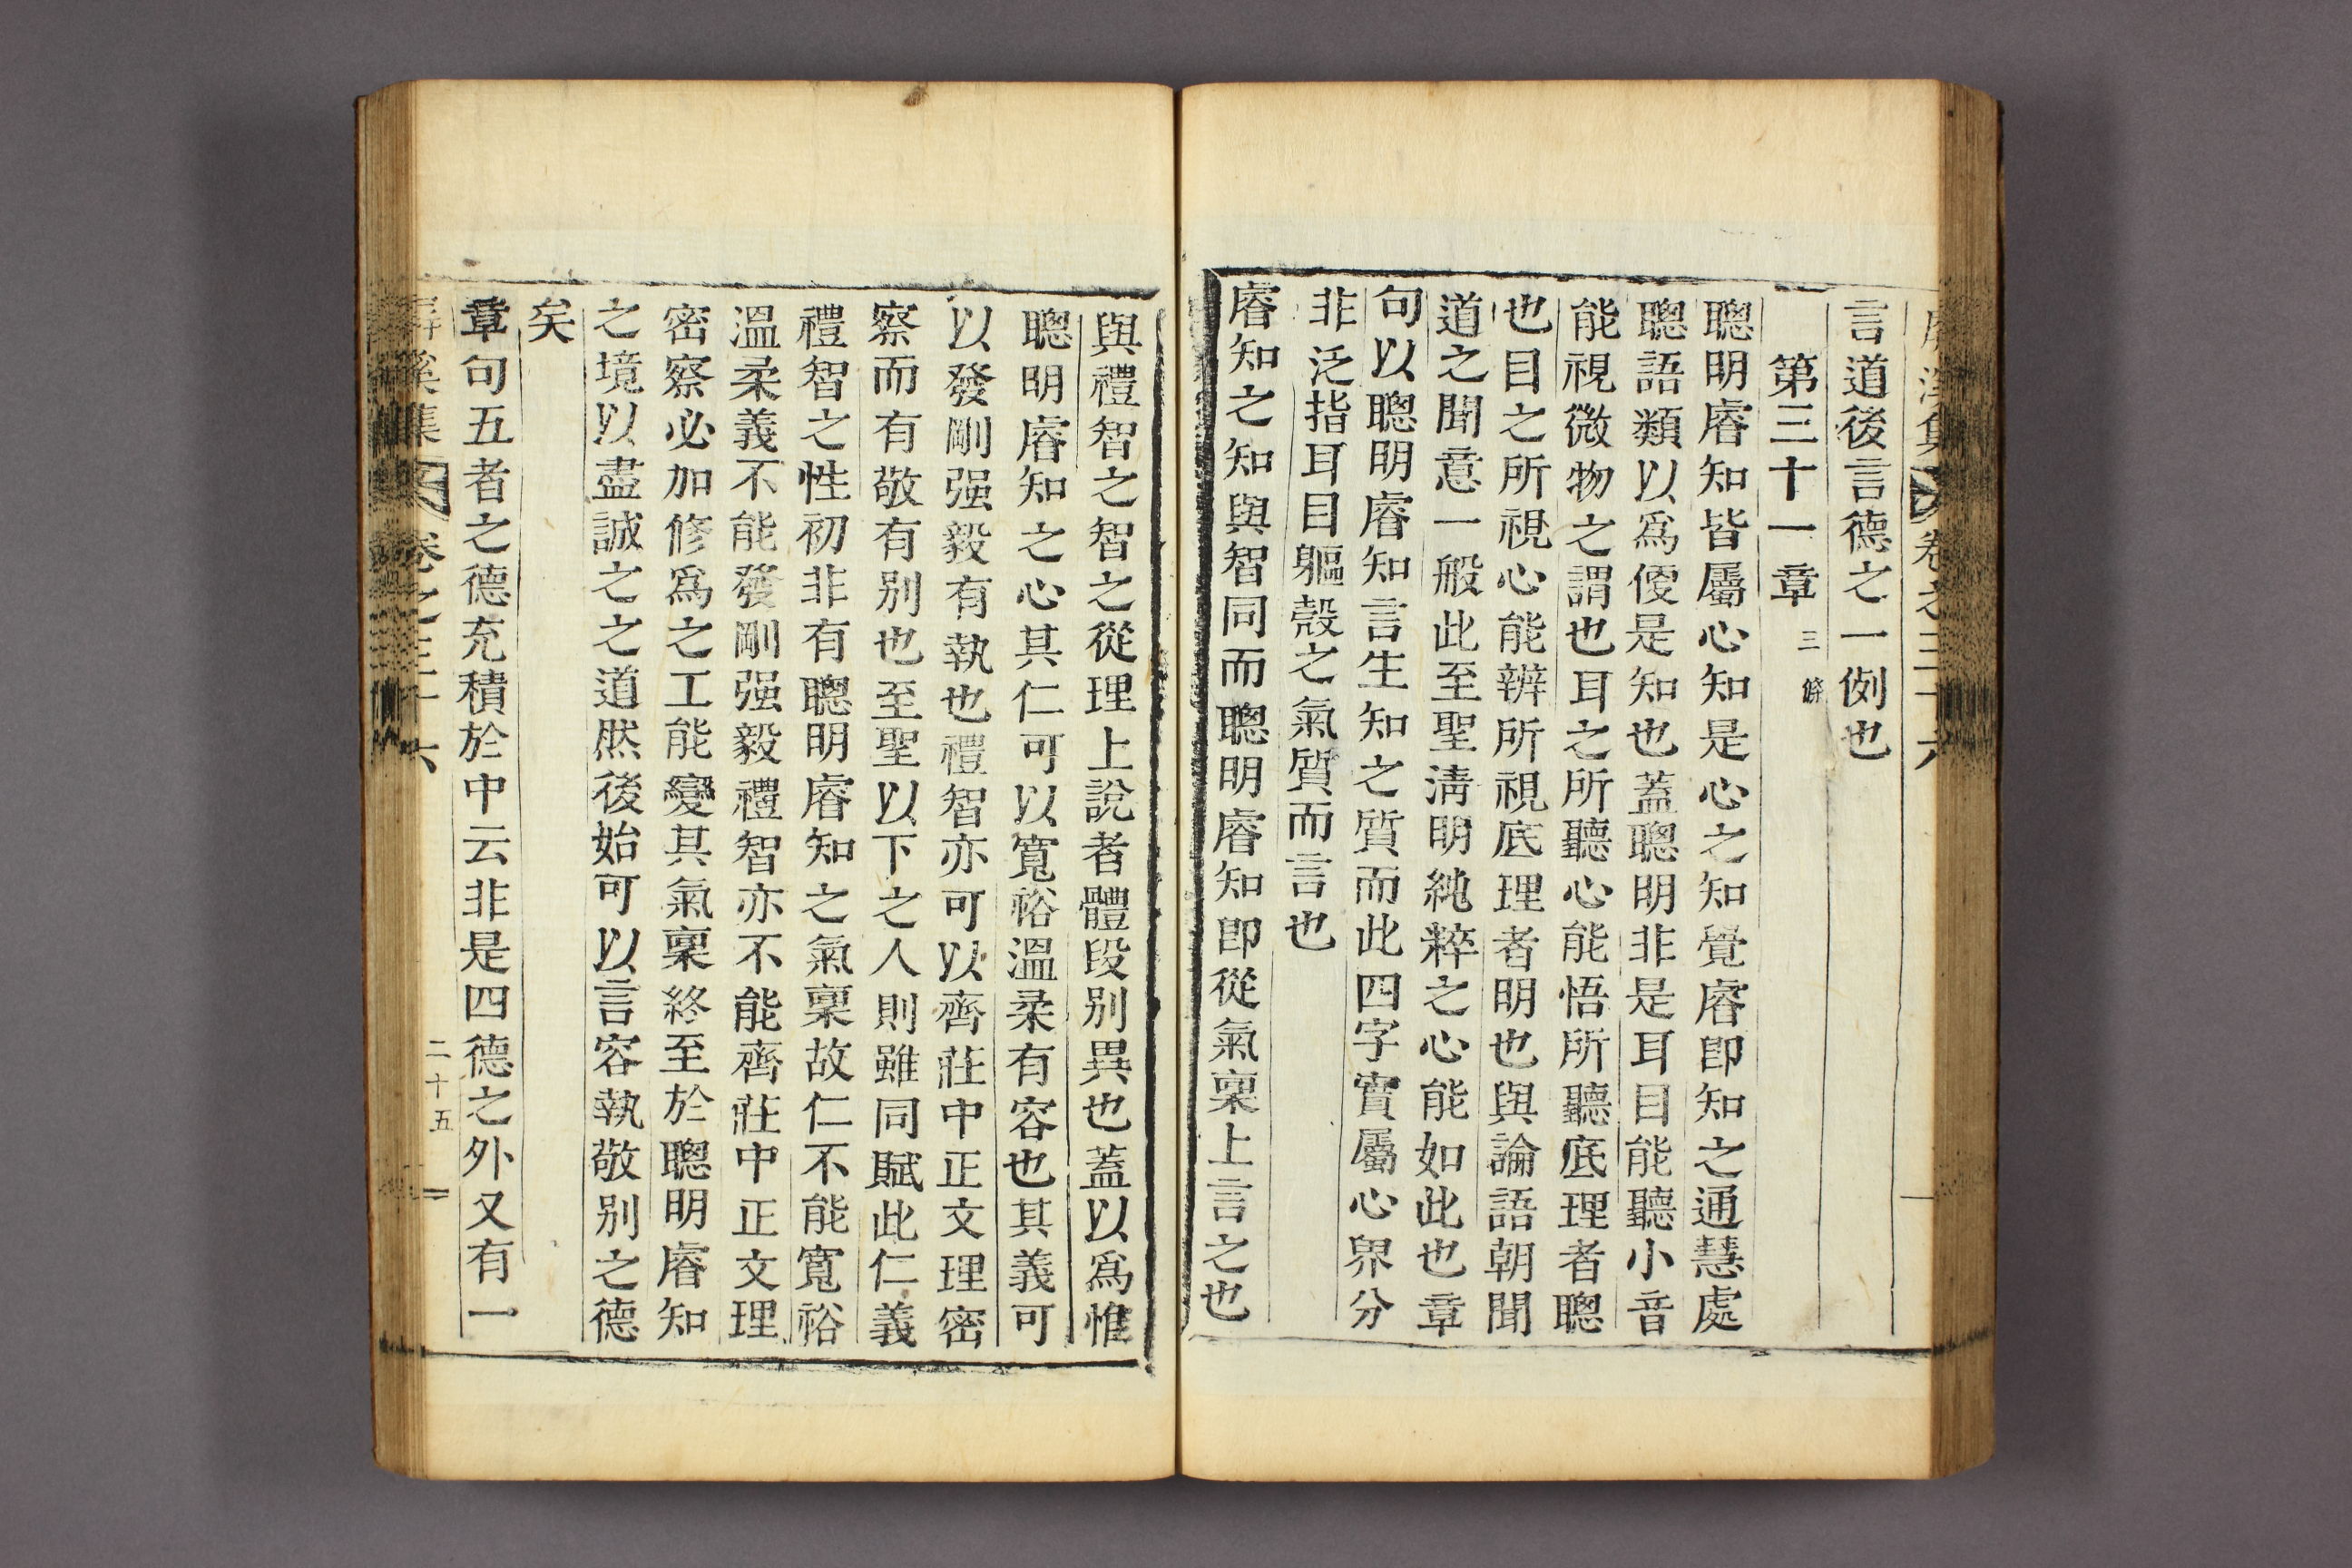 言道後言德之一例也
第三十一章 三 條
聰明睿知皆屬心知是心之知覺睿卽知之通慧處
聰語類以爲便是知也蓋聰明非是耳目能聽小音
能視微物之謂也耳之所聽心能悟所聽底理者聰
也目之所視心能辨所視底理者明也與論語朝聞
道之聞意一般此至聖淸明純粹之心能如此也章
句以聰明睿知言生知之質而此四字實屬心界分
非泛指耳目軀殼之氣質而言也
睿知之知與智同而聰明睿知卽從氣稟上言之也
與禮智之智之從理上說者體段別異也蓋以爲惟
聰明睿知之心其仁可以寬裕溫柔有容也其義可
以發剛强毅有執也禮智亦可以齊莊中正文理密
察而有敬有別也至聖以下之人則雖同賦此仁義
禮智之性初非有聰明睿知之氣稟故仁不能寬裕
溫柔義不能發剛强毅禮智亦不能齊莊中正文理
密察必加修爲之工能變其氣稟終至於聰明睿知
之境以盡誠之之道然後始可以言容執敬別之德
矣
章句五者之德充積於中云非是四德之外又有一
屛溪集 卷之三十六 二十五